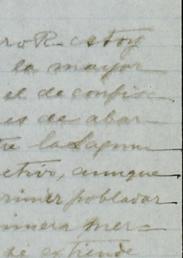 ro R- estoy
la mayor
el de confisc
es de abar
tre la Laguna
ctivo, aunque
primer poblador
rimera mer-
se extiende